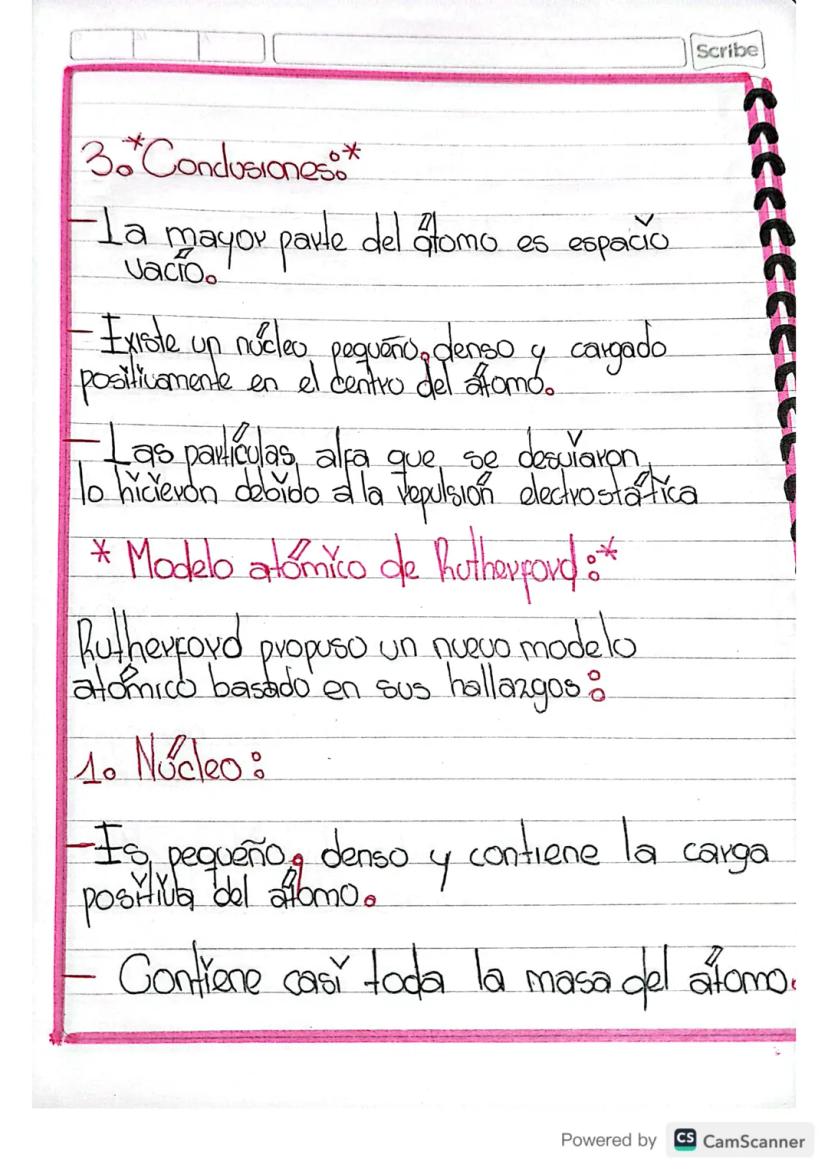 Scribe
3.*Conclusiones:*
-La mayor parte del átomo es espacio
vacío.
- Existe un núcleo pequeño, denso y cargado
positivamente en el centro del átomo.
- Las partículas alfa que se desviaron
lo hicieron debido a la repulsión electrostática
* Modelo atómico de Rutherford:*
Rutherford propuso un nuevo modelo
atómico basado en sus hallazgos:
1. Núcleo:
-Es pequeño, denso y contiene la carga
positiva del átomo.
- Contiene casi toda la masa del átomo.
Powered by CS CamScanner